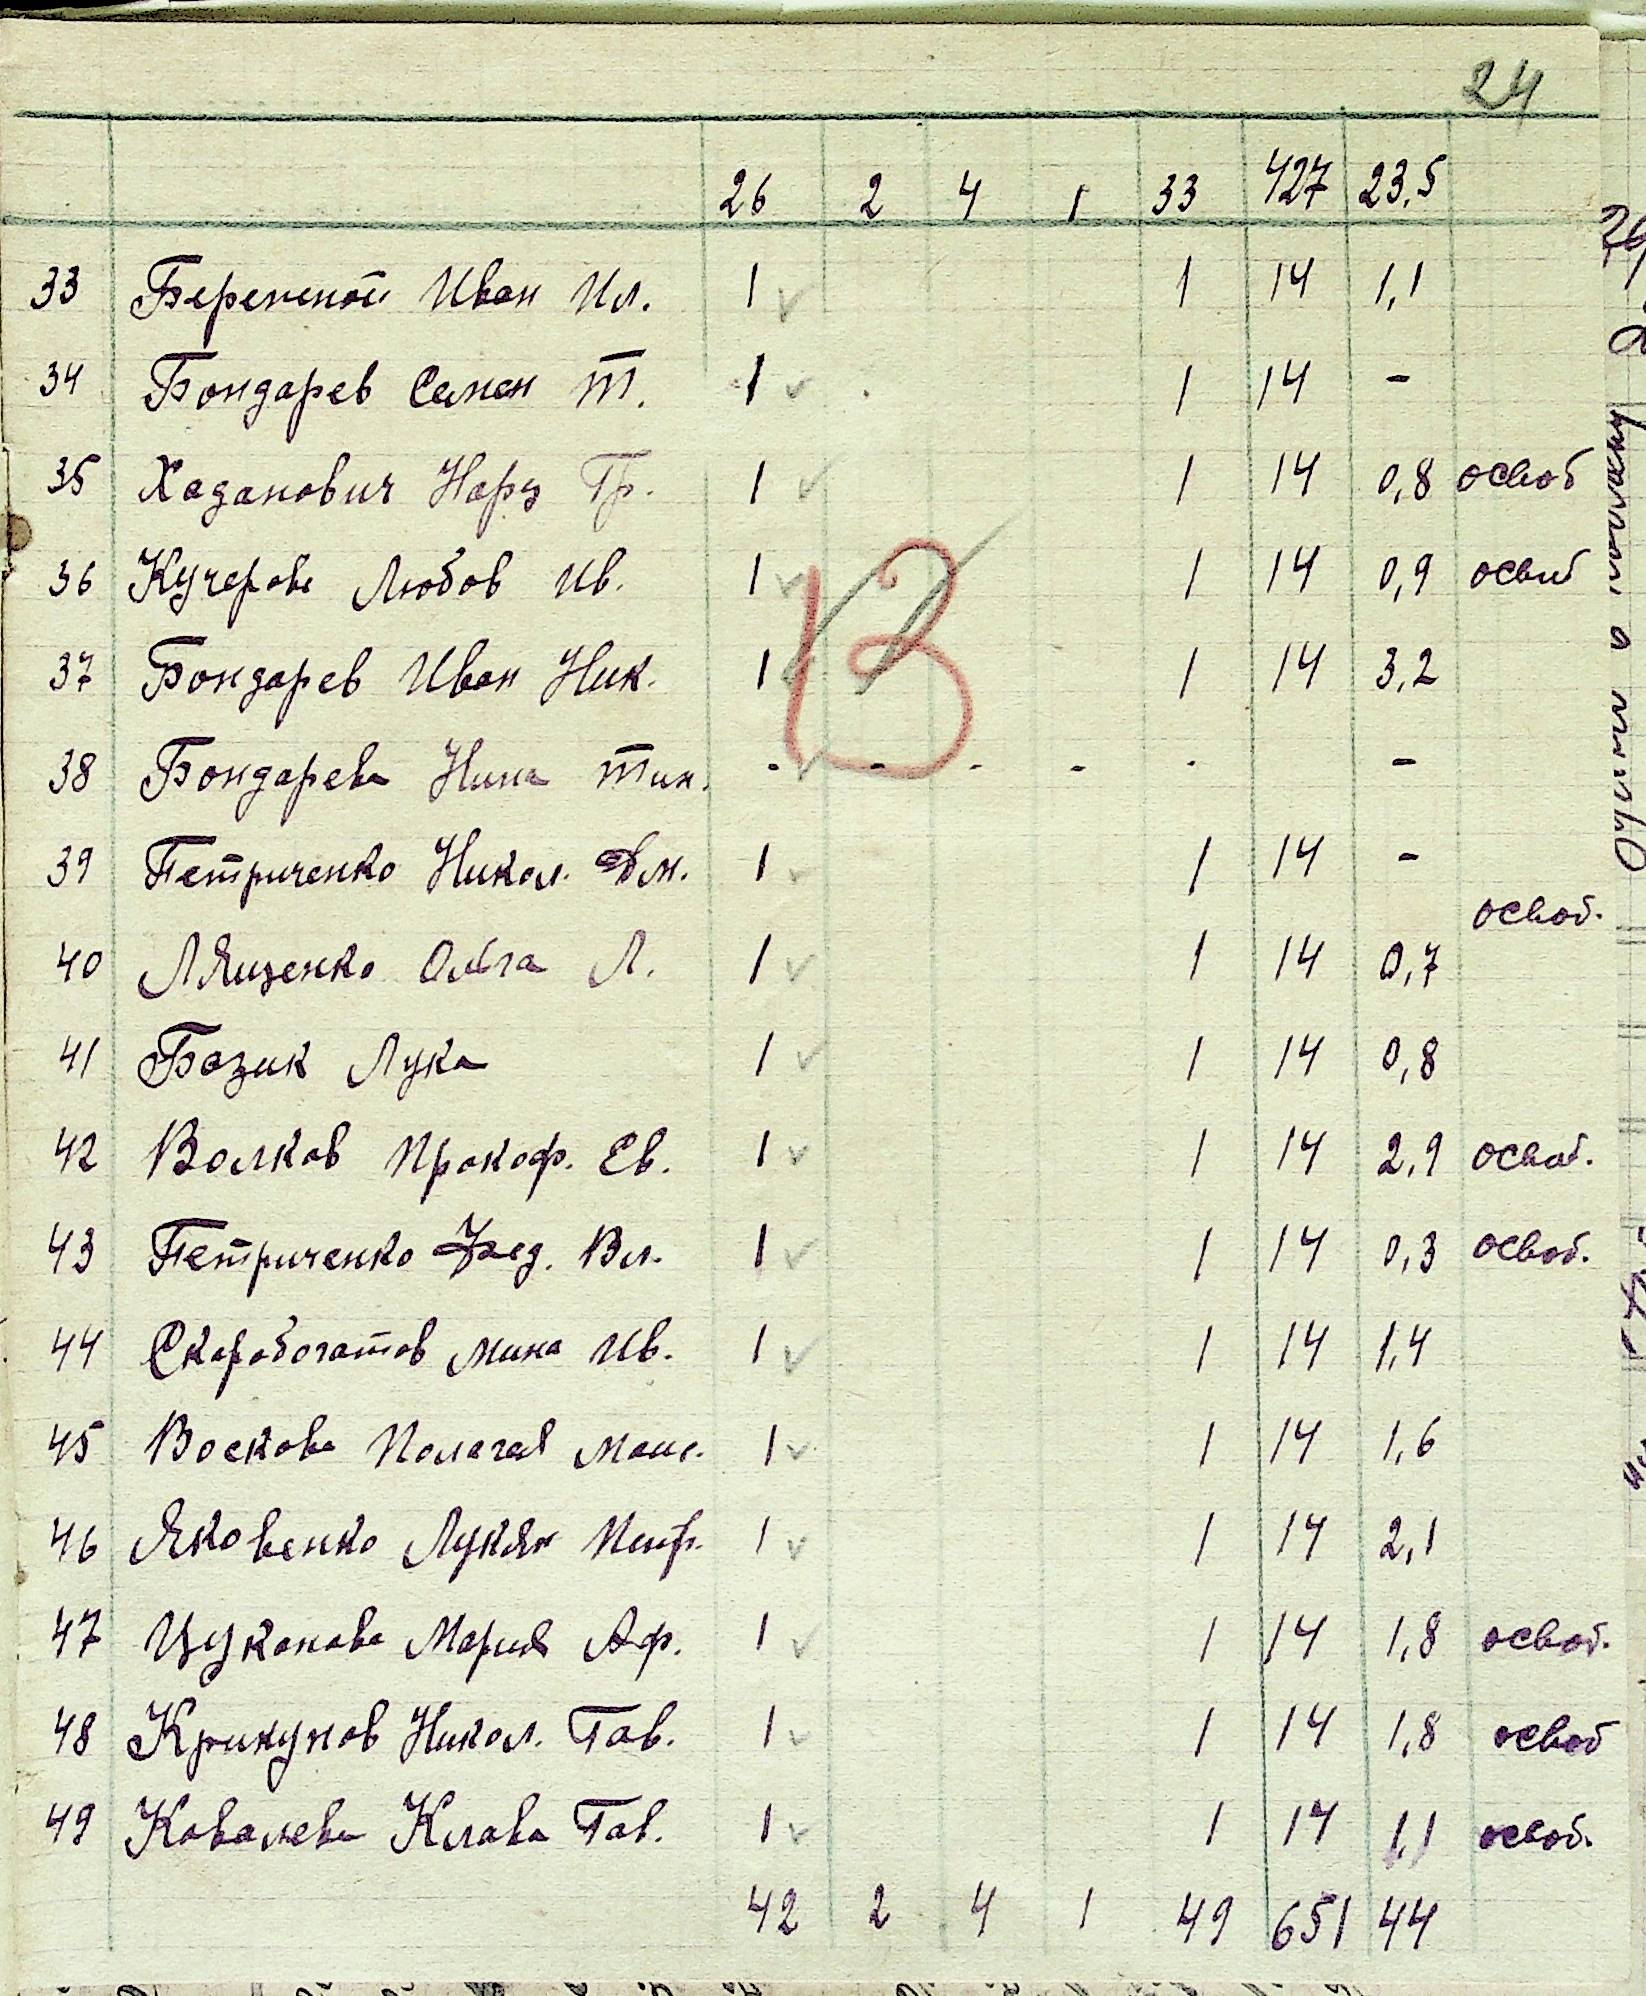 24
26 2 4 1 33 427 23,5
33 Иван Ил. 1 1 14 1,1
34 Бондарев Семен Т. 1 1 14 -
35 Хаданович Гр. 1 1 14 0,8 освоб
36 Кучерова Любов Ив. 1 1 14 0,9 освоб
13
37 Бондарев Иван Ник. 1 1 14 3,2
38 Бондарева Нина Тих. - - - - - -
39 Петриченко Никол. Дм. 1 1 14 -
освоб.
40 Лященко Ольга Л. 1 1 14 0,7
41 Базик Лука 1 1 14 0,8
42 Волков Прокоф. Ев. 1 1 14 2,9 освоб.
43 Петриченко Фед. Вл. 1 1 14 0,3 освоб.
44 Скоробогатов Мина Ив. 1 1 14 1,4
45 Воскова Полагая 1 1 14 1,6
46 Яковенко Лукян 1 1 14 2,1
47 Цуканова Мария Аф. 1 1 14 1,8 освоб.
48 Крикунов Никол. Гав. 1 1 14 1,8 освоб
49 Ковалева Клава Гав. 1 1 14 1,1 освоб.
42 2 4 1 49 651 44